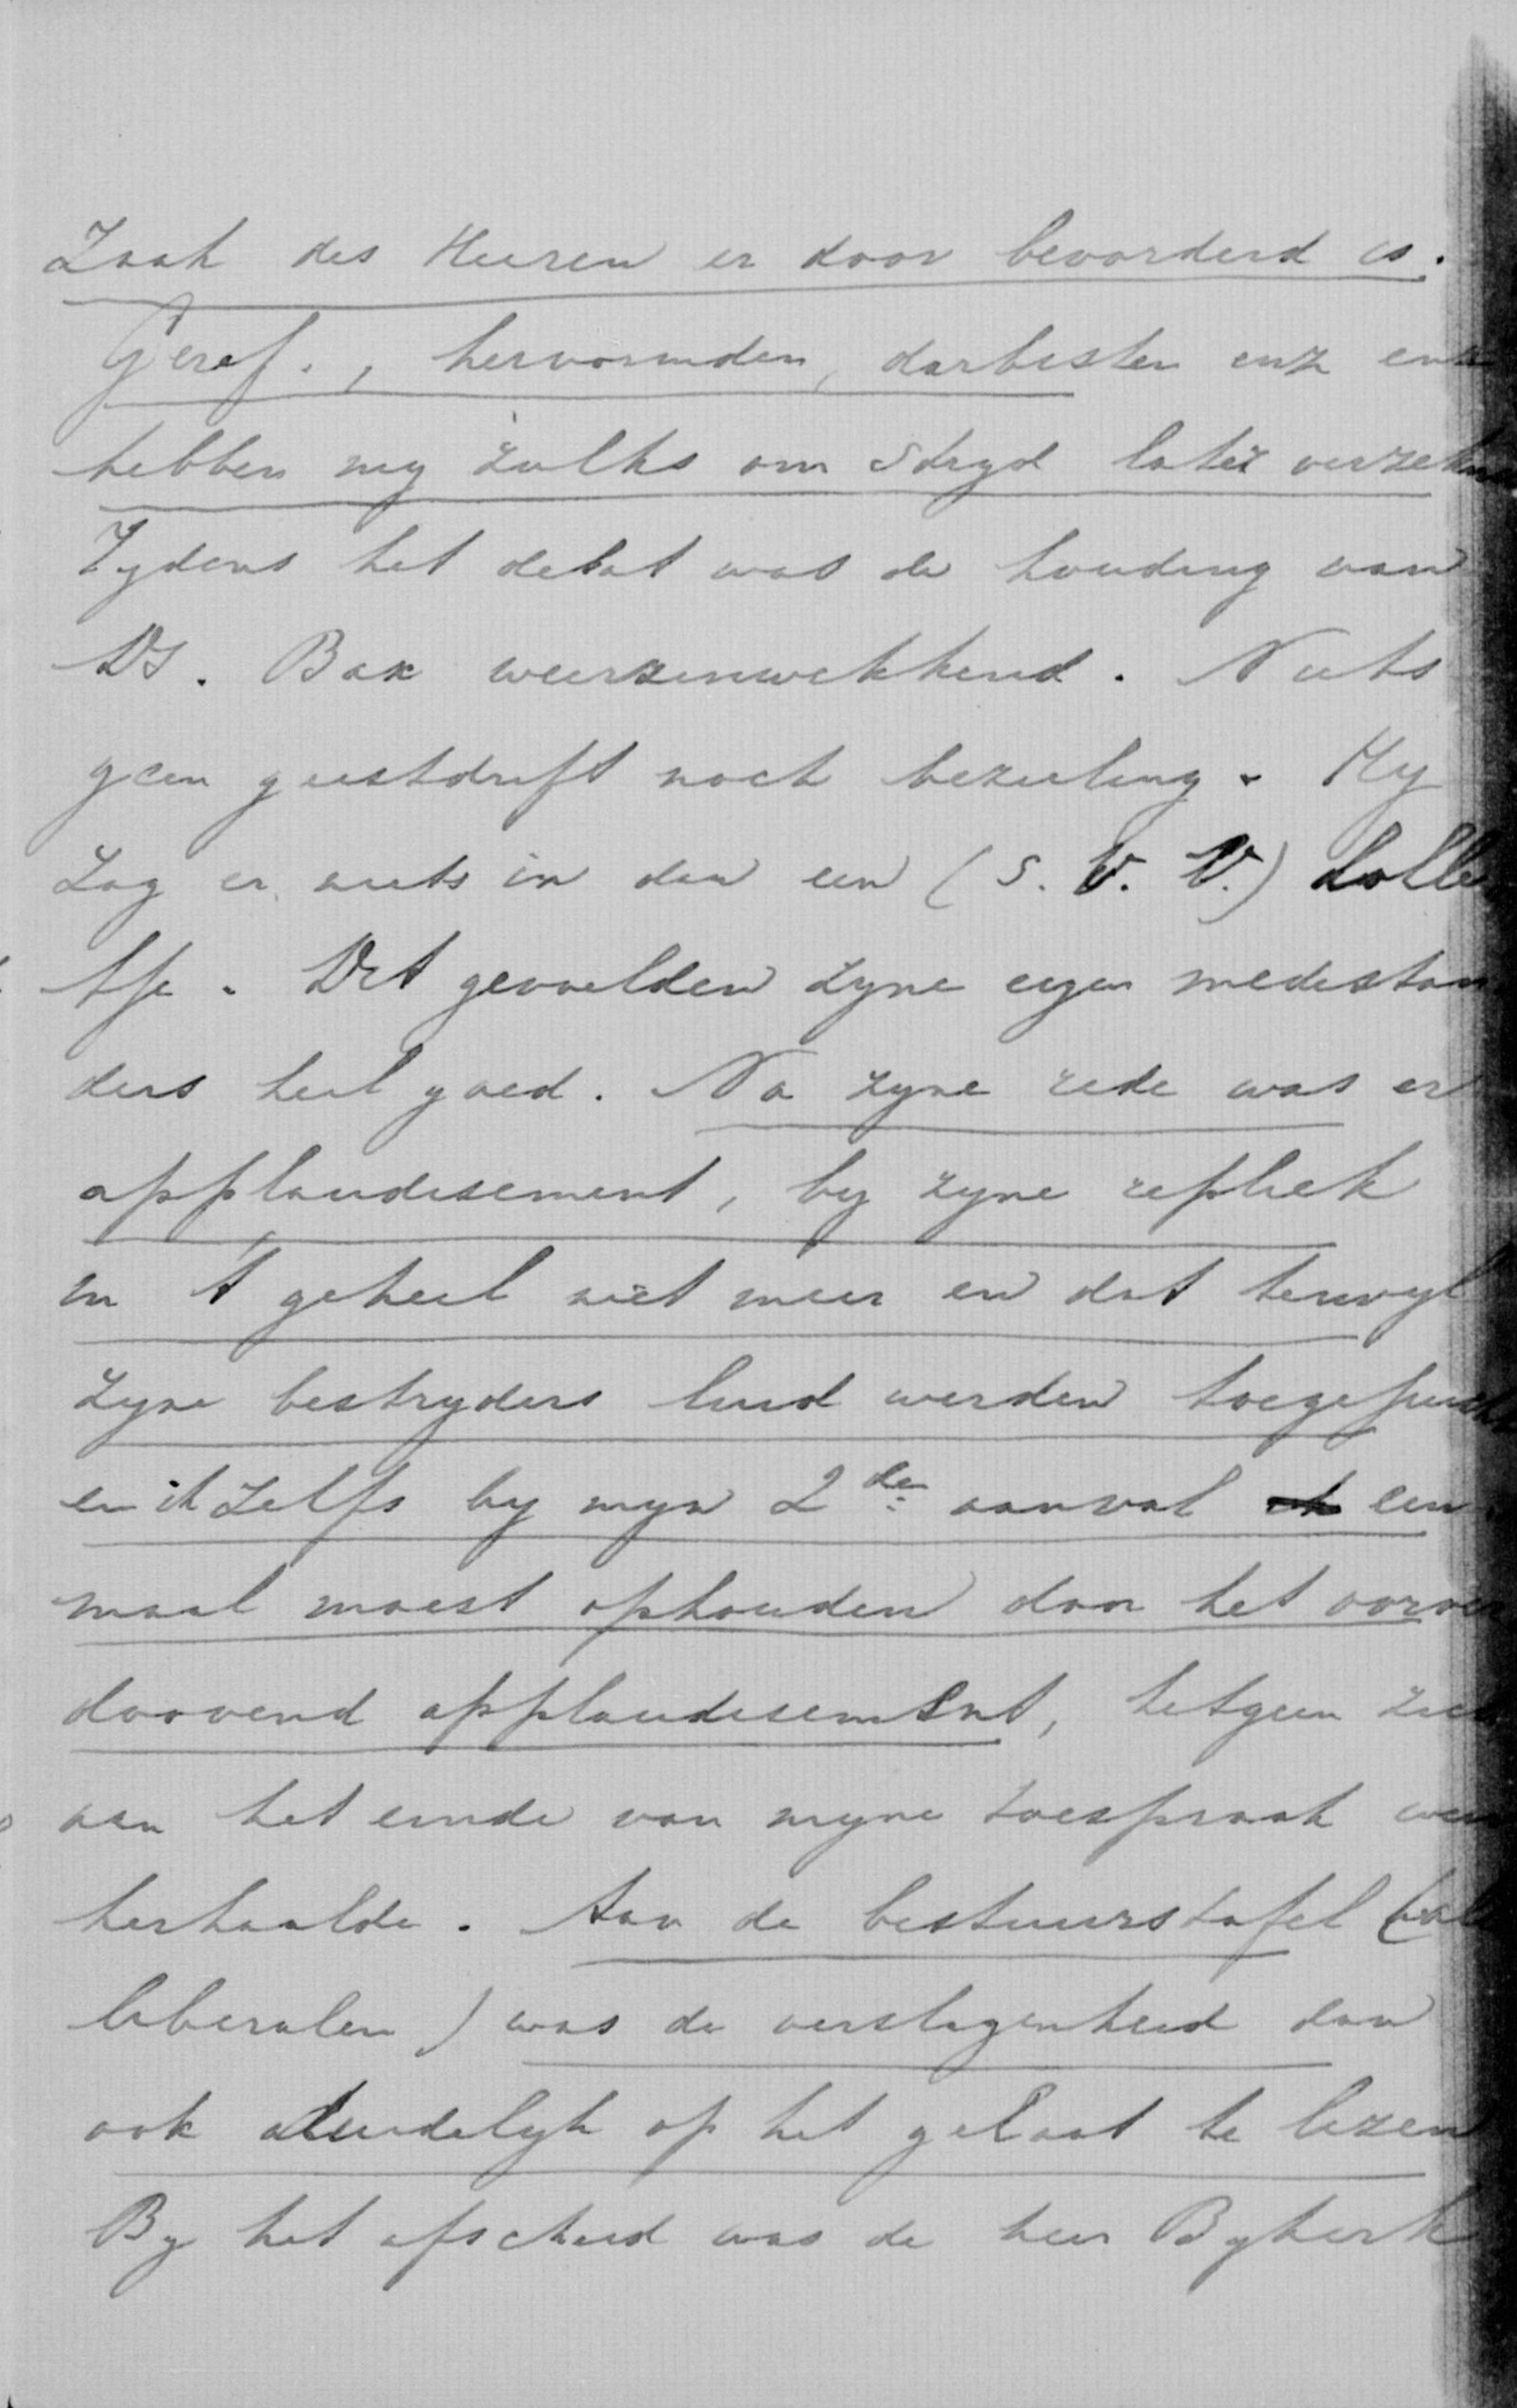 Zaak des Heeren er door bevorderd is.
Geref., hervormden, darbisten enz enz
hebben my zulks om stryd later verzekerd
Tydens het debat was de houding van
Ds. Bax weerzinwekkend. Niets
geen geestdrift noch bezieling. Hy
zag er niets in dan een (s. V. V.) lolle
tje. Dit gevoelden zyne eigen medestan
ders heel goed. Na zyne rede was er
applaudisement, by zyne repliek
in 't geheel niet meer en dat terwyl
zyne bestryders luid werden toegejuicht
en ik zelfs by myn 2de aanval een
maal moest ophouden door het oorver
doovend applaudisement, hetgeen zich
aan het einde van myne toespraak weer
herhaalde. Aan de bestuurstafel
liberalen) was de verslagenheid dan
ook duidelyk op het gelaat te lezen
By het afscheid was de heer Bykerk